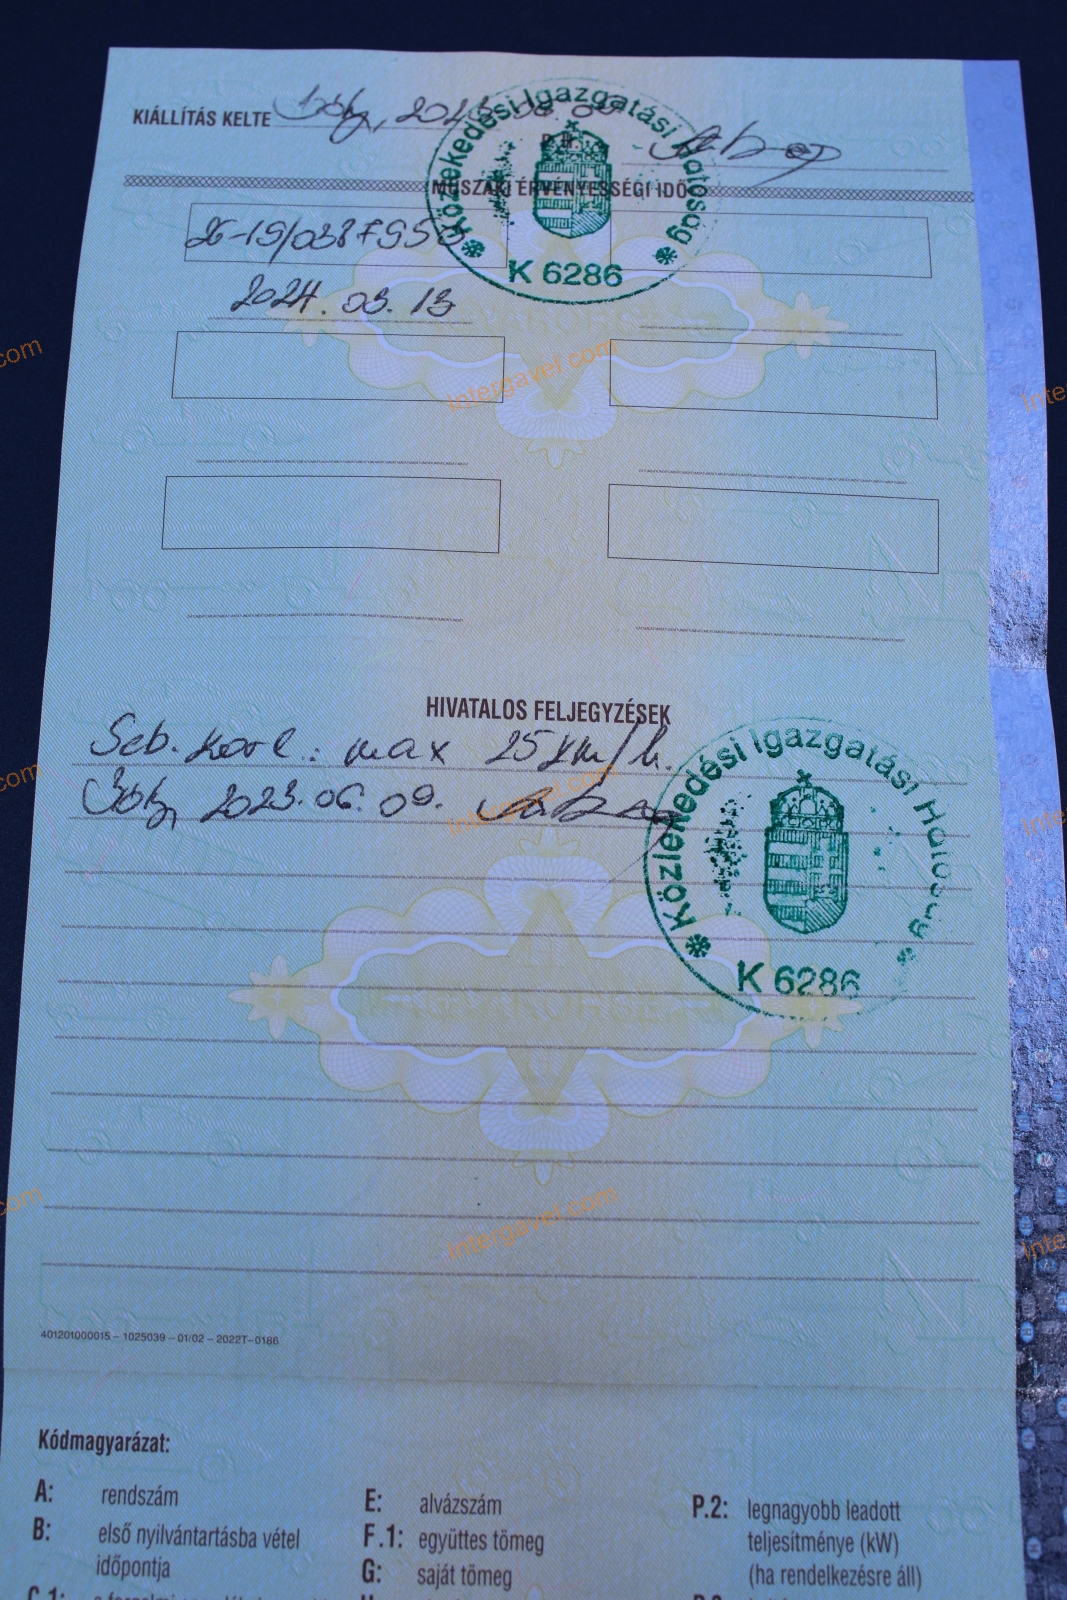 KIÁLLÍTÁS KELTE 2023 06 09
P.H.
Közlekedési Igazgatási Hatóság
MŰSZAKI ÉRVÉNYESSÉGI IDŐ
K 6286
2024. 03. 13
HIVATALOS FELJEGYZÉSEK
Seb. korl.: max 25 km/h.
2023. 06. 09.
Közlekedési Igazgatási Hatóság
K 6286
401201000015 – 1025039 – 01/02 – 2022T–0186
Kódmagyarázat:
A: rendszám
B: első nyilvántartásba vétel
időpontja
C.1:
E: alvázszám
F.1: együttes tömeg
G: saját tömeg
P.2: legnagyobb leadott
teljesítménye (kW)
(ha rendelkezésre áll)
Intergavel.com
Intergavel.com
Intergavel.com